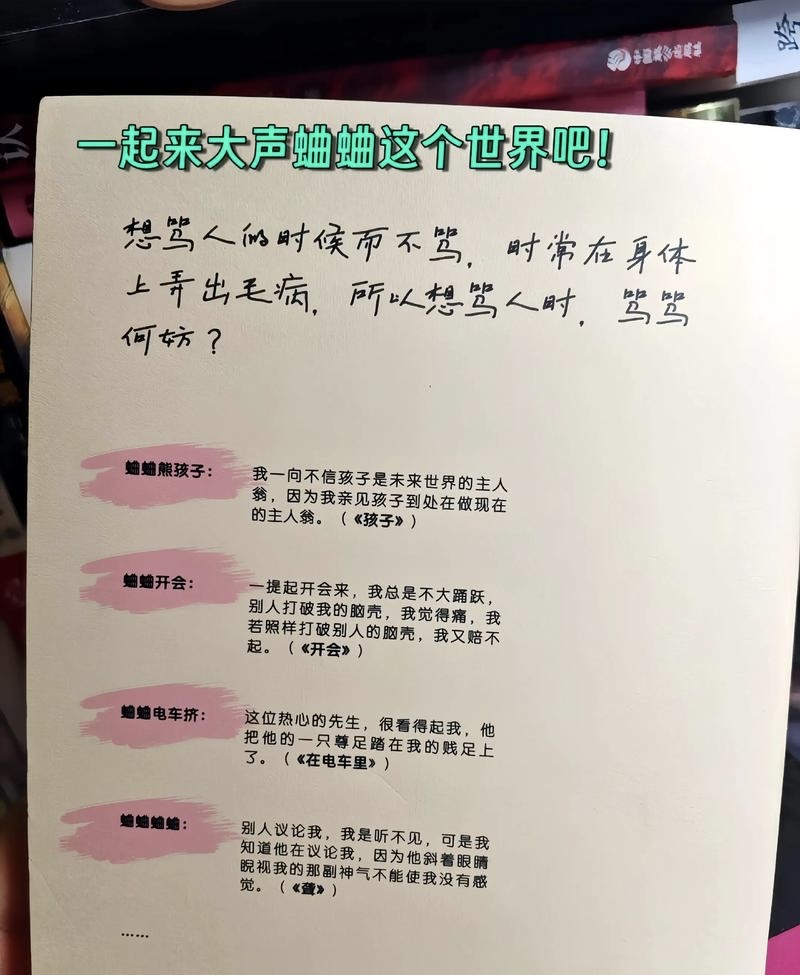 跨
中国致公出版社
一起来大声蛐蛐这个世界吧！
想骂人的时候而不骂，时常在身体
上弄出毛病，所以想骂人时，骂骂
何妨？
蛐蛐熊孩子：
我一向不信孩子是未来世界的主人
翁，因为我亲见孩子到处在做现在
的主人翁。（《孩子》）
蛐蛐开会：
一提起开会来，我总是不大踊跃，
别人打破我的脑壳，我觉得痛，我
若照样打破别人的脑壳，我又赔不
起。（《开会》）
蛐蛐电车挤：
这位热心的先生，很看得起我，他
把他的一只尊足踏在我的贱足上
了。（《在电车里》）
蛐蛐蛐蛐：
别人议论我，我是听不见，可是我
知道他在议论我，因为他斜着眼睛
睨视我的那副神气不能使我没有感
觉。（《聋》）
……